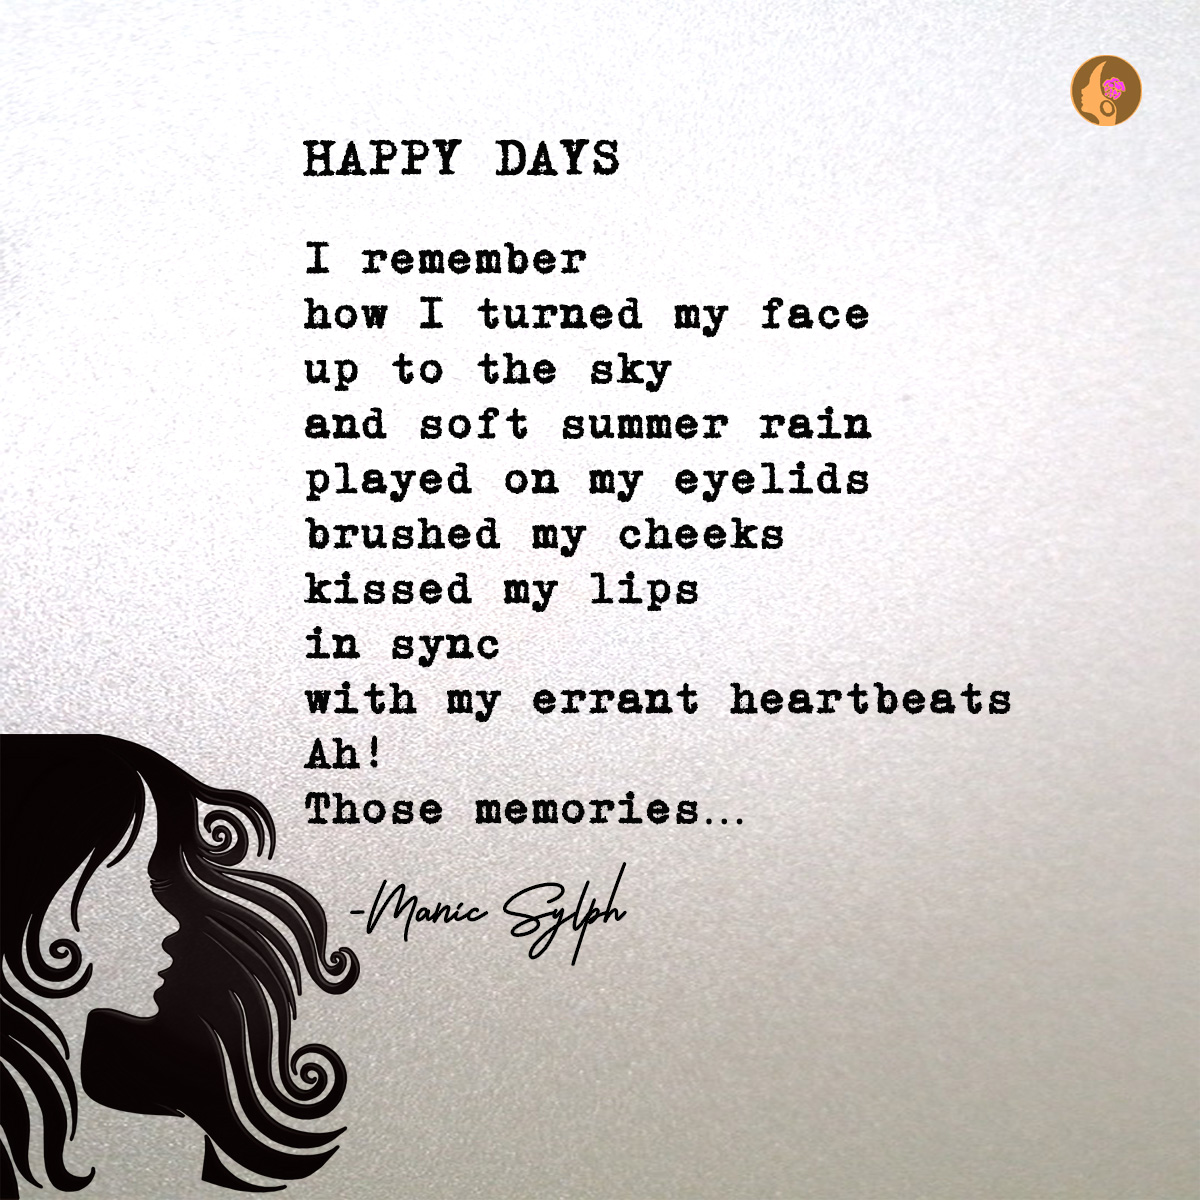 HAPPY DAYS
I remember
how I turned my face
up to the sky
and soft summer rain
played on my eyelids
brushed my cheeks
kissed my lips
in sync
with my errant heartbeats
Ah!
Those memories...
-Manic Sylph